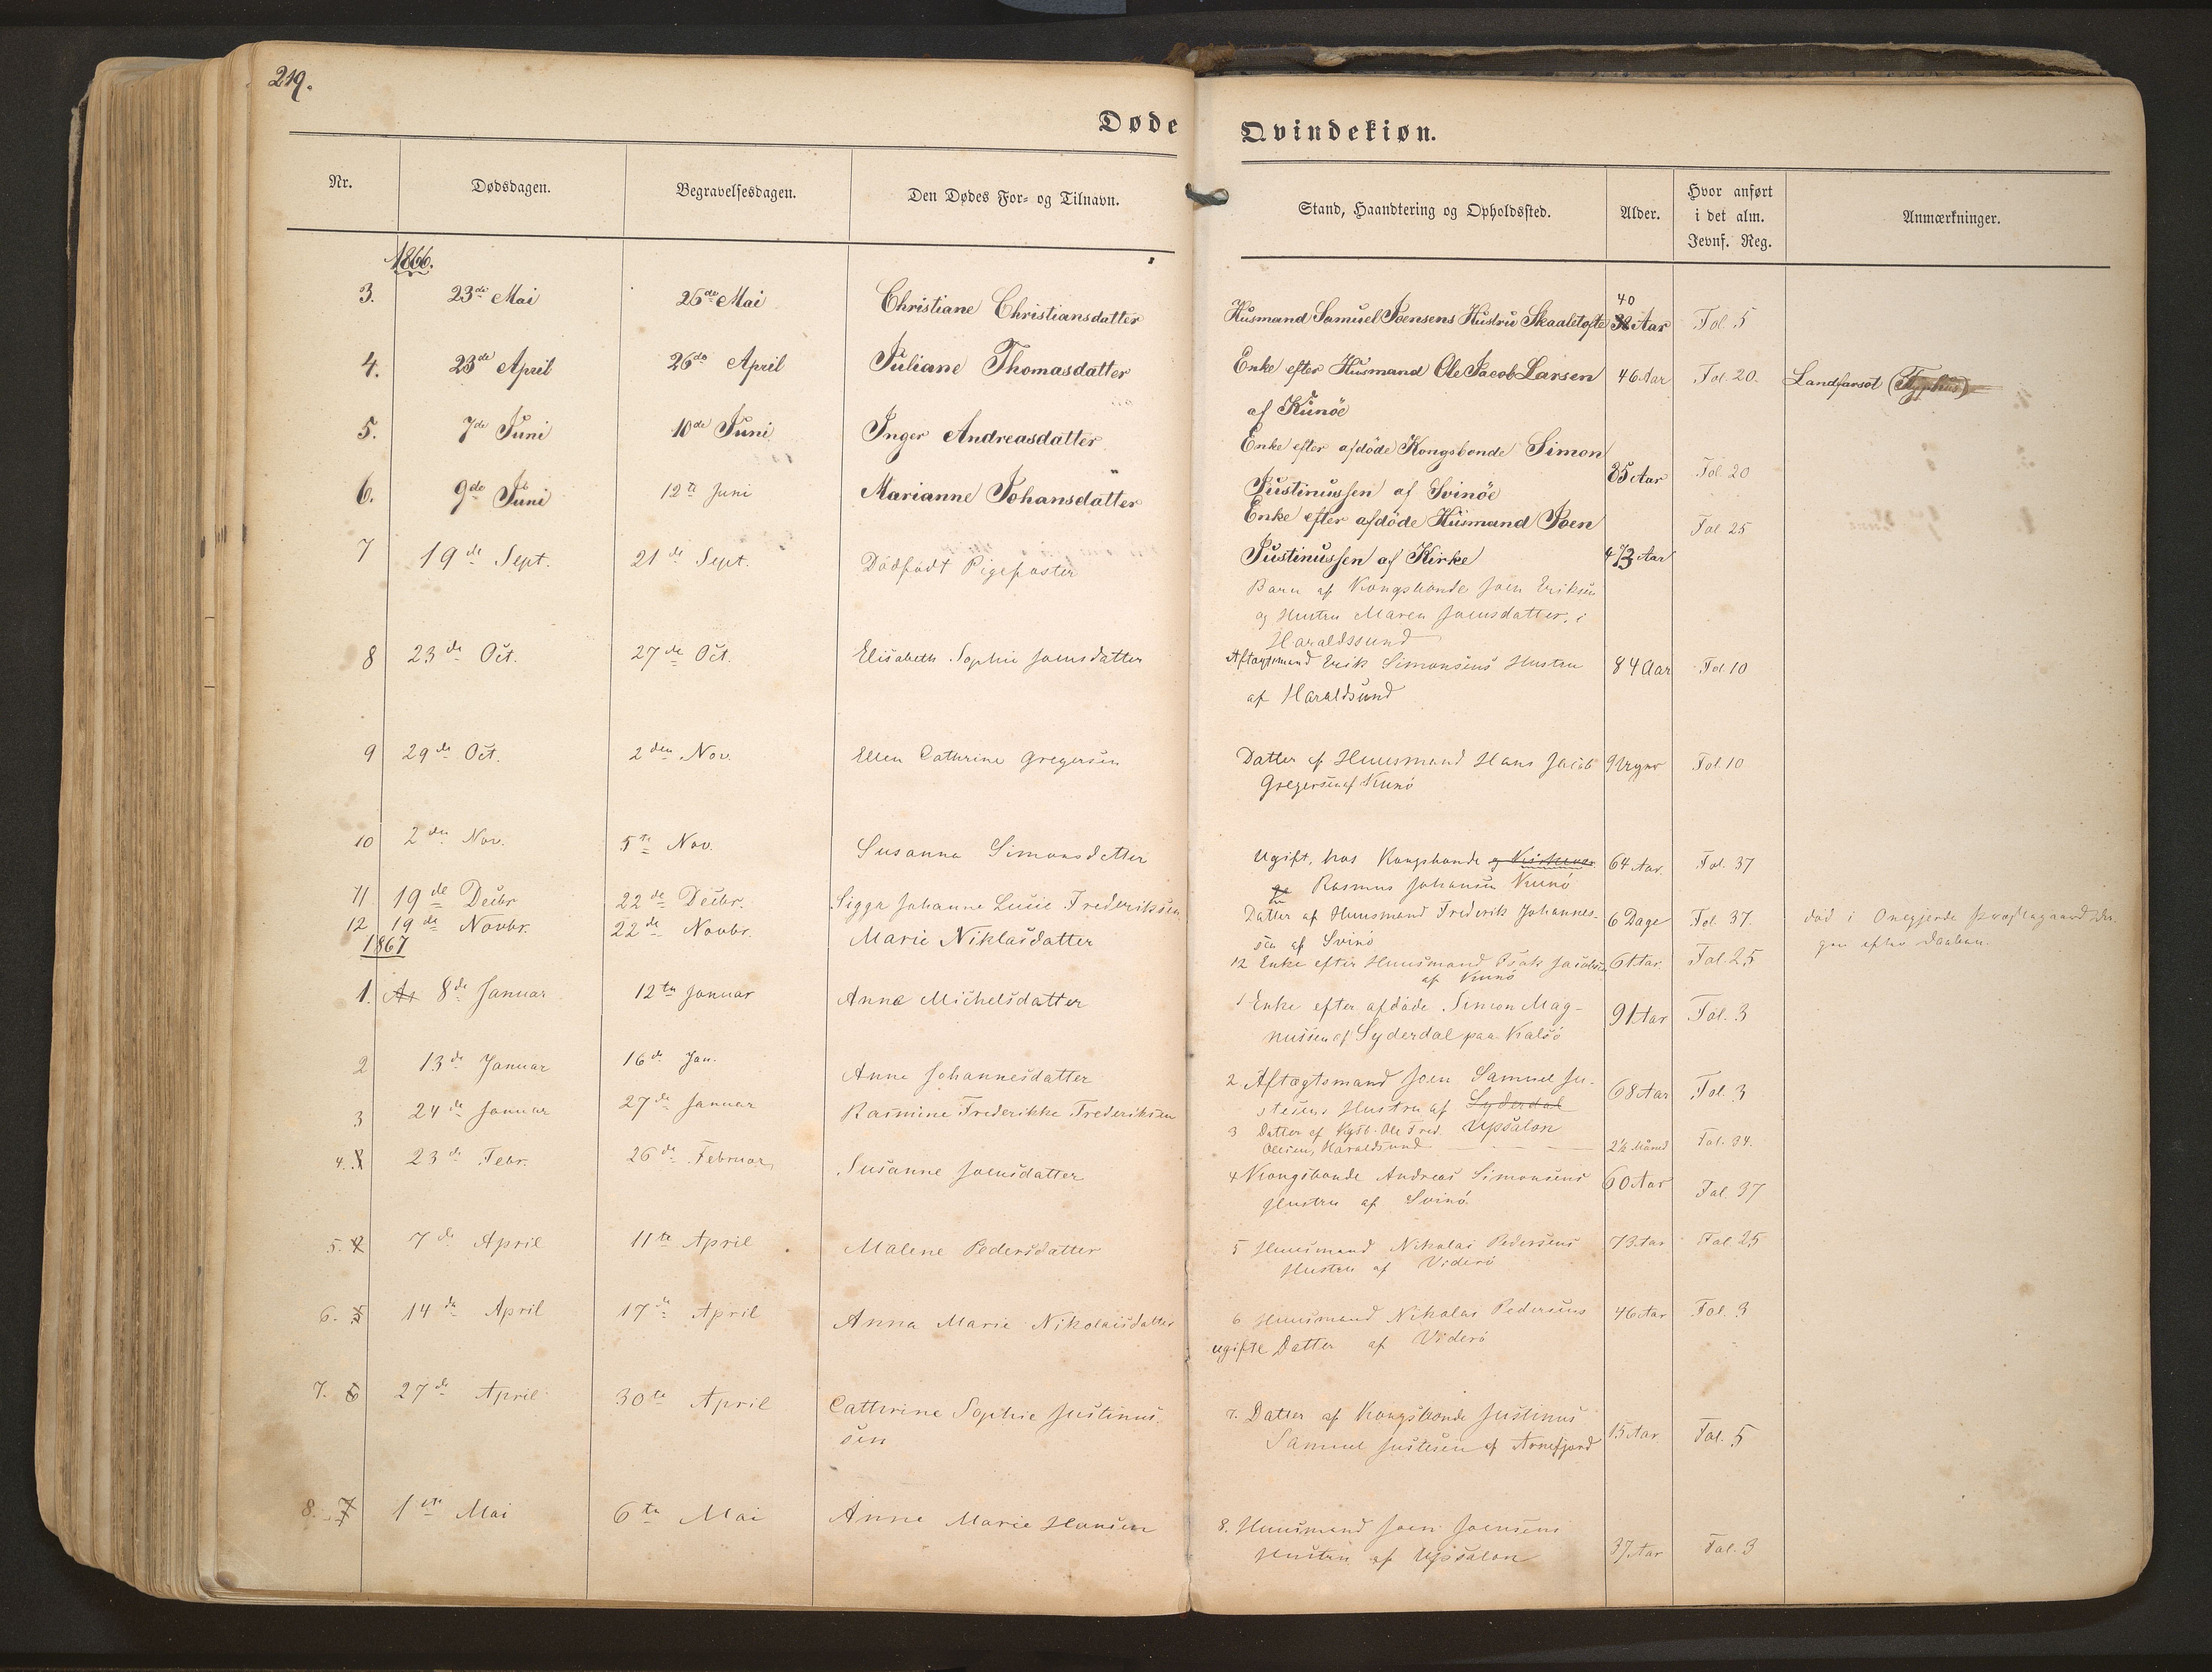 219.
Døde
Qvindekiøn.
Nr. Dødsdagen. Begravelsesdagen. Den Dødes For- og Tilnavn. Stand, Haandtering og Opholdssted. Alder. Hvor anført i det alm. Jevnf. Reg. Anmærkninger.
1866.
3. 23de Mai 26de Mai Christiane Christiansdatter Husmand Samuel Joensens Hustru Skaaletofte 40 Aar Fol. 5
4. 23de April 26de April Juliane Thomasdatter Enke efter Husmand Ole Jacob Larsen 46 Aar Fol. 20. Landfarsot (Typhus)
af Kunöe
5. 7de Juni 10de Juni Inger Andreasdatter Enke efter afdöde Kongsbonde Simon
Justinussen af Svinöe 85 Aar Fol 20
6. 9de Juni 12te Juni Marianne Johansdatter Enke efter afdöde Husmand Joen
Justinussen af Kirke 73 Aar Fol 25
7 19de Sept. 21de Sept. Dödfödt Pigefoster Barn af Kongsbonde Joen Eriksen
og Hustru Maren Joensdatter, i
Haraldssund
8 23de Oct. 27de Oct. Elisabeth Sophie Joensdatter Aftægtsmand Erik Simonsens Hustru 84 Aar Fol 10
af Haraldsund
9 29de Oct. 2den Nov. Ellen Cathrine Gregersen Datter af Huusmand Hans Jacob 9 Uger Fol. 10
Gregersen af Kunö
10 2den Nov. 5te Nov. Susanna Simonsdatter Ugift, hos Kongsbonde 64 Aar. Fol. 37
Rasmus Johansen Kunö
11 19de Decbr 22de Decbr. Sigga Johanne Lucie Frederiksen Datter af Huusmand Frederik Johannes- 6 Dage Fol. 37. död i Præstegaard
sen af Svinö efter Daaben.
12 19de Novbr. 22de Novbr. Marie Niklasdatter 12 Enke efter Huusmand Isak Jacobsen 61 Aar. Fol. 25
af Kunö
1867
1. 8de Januar 12te Januar Anne Michelsdatter 1 Enke efter afdöde Simon Mag-
nussen af Syderdal paa Kalsö 91 Aar Fol. 3
2 13de Januar 16de Jan. Anne Johannesdatter 2 Aftægtsmand Joen Samuel Ju-
stesens Hustru af Syderdal 68 Aar Fol. 3
Upsalon
3 24de Januar 27de Januar Rasmine Frederikke Frederiksen 3 Datter af Kgsb. Ole Fred.
Olesen, Haraldsund 2½ Maaned Fol. 34.
4. 23de Febr. 26de Februar Susanne Joensdatter 4 Kongsbonde Andreas Simonsens 60 Aar Fol. 37
Hustru af Svinö
5. 7de April 11te April Malene Pedersdatter 5 Huusmand Nikolai Pedersens 73 Aar Fol. 25
Hustru af Viderö
6. 5 14de April 17de April Anna Marie Nikolaisdatter 6 Huusmand Nikolas Pedersens 46 Aar Fol. 3
ugifte Datter af Viderö
7. 6 27de April 30te April Cathrine Sophie Justinus-
sen 7. Datter af Kongsbonde Justinus
Samuel Justesen af Arnefjord 15 Aar Fol. 5
8. 7 1ste Mai 6te Mai Anne Marie Hansen 8. Huusmand Joen Joensens
Hustru af Upsalon 37 Aar Fol. 3